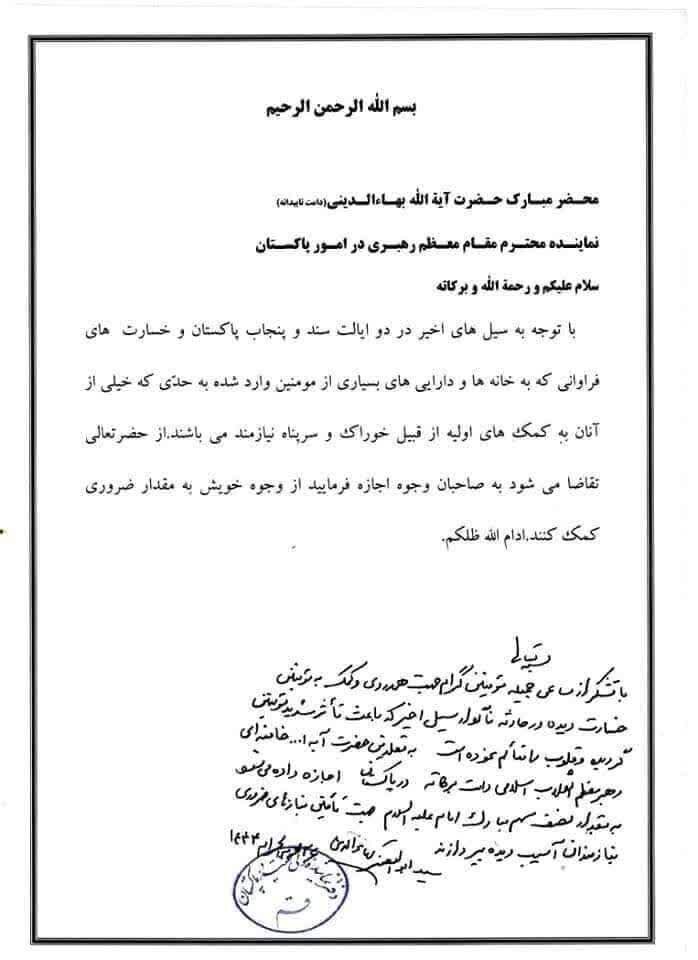 بسم الله الرحمن الرحیم
محضر مبارک حضرت آیة الله بهاءالدینی(دامت تاییداته)
نماینده محترم مقام معظم رهبری در امور پاکستان
سلام علیکم و رحمة الله و برکاته
با توجه به سیل های اخیر در دو ایالت سند و پنجاب پاکستان و خسارت های
فراوانی که به خانه ها و دارایی های بسیاری از مومنین وارد شده به حدّی که خیلی از
آنان به کمک های اولیه از قبیل خوراک و سرپناه نیازمند می باشند.از حضرتعالی
تقاضا می شود به صاحبان وجوه اجازه فرمایید از وجوه خویش به مقدار ضروری
کمک کنند.ادام الله ظلکم.
با تشکر از مساعی جمیله مؤمنین گرام جهت همدردی و کمک به مؤمنین
خسارت دیده در حادثه ناگوار سیل اخیر که باعث تأثر شدید مؤمنین
گردیده و قلوب را متألم نموده است حضرت آیة ا... خامنه ای
رهبر معظم انقلاب اسلامی دامت برکاته در پاکستان اجازه داده می شود
به مقدار نصف سهم مبارک امام علیه السلام جهت تأمین نیازهای ضروری
نیازمندان آسیب دیده بپردازند
سید ابوالحسن
قم